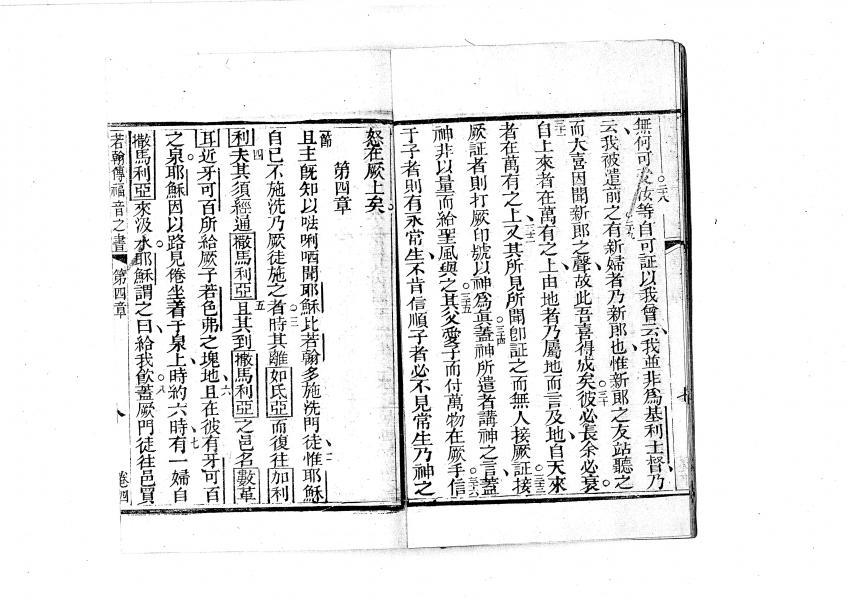 無何可受汝等自可証以我曾云我並非爲基利士督乃
云我被遣前之有新婦者乃新郎也惟新郎之友站聽之
而大喜因聞新郎之聲故此吾喜得成矣彼必長余必衰
自上來者在萬有之上由地者乃屬地而言及地自天來
者在萬有之上又其所見所聞卽証之而無人接厥証接
厥証者則打厥印號以神爲眞蓋神所遣者講神之言蓋
神非以量而給聖風與之其父愛子而付萬物在厥手信
于子者則有永常生不肯信順子者必不見常生乃神之
怒在厥上矣
第四章
且主旣知以𠵽唎哂聞耶穌比若翰多施洗門徒惟耶穌
自己不施洗乃厥徒施之者時其離如氐亞而復往加利
利夫其須經通撒馬利亞且其到撒馬利亞之邑名數革
耳近牙可百所給厥子若色弗之塊地且在彼有牙可百
之泉耶穌因以路見倦坐着于泉上時約六時有一婦自
撒馬利亞來汲水耶穌謂之曰給我飲蓋厥門徒往邑買
若翰傳福音之書 第四章 八 卷四